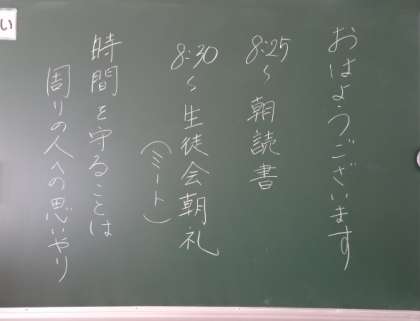 おはようございます
8:25〜朝読書
8:30〜生徒会朝礼
(ミート)
時間を守ることは
周りの人への思いやり
い